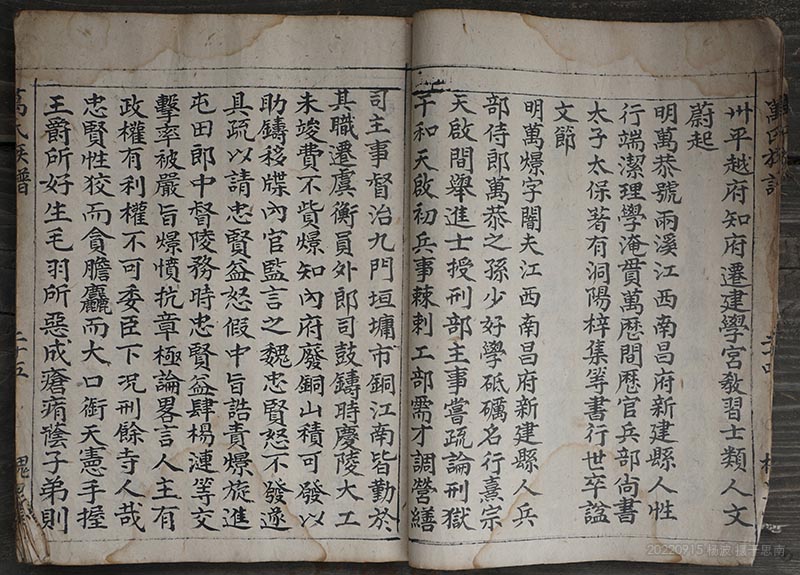 卅平越府知府遷建學宮教習士類人文
蔚起
明萬恭號兩溪江西南昌府新建縣人性
行端潔理學淹貫萬歷間歷官兵部尚書
太子太保著有洞陽梓集等書行世卒諡
文節
明萬爆字闇夫江西南昌府新建縣人兵
部侍郎萬恭之孫少好學砥礪名行熹宗
天啟間舉進士授刑部主事嘗疏論刑獄
干和天啟初兵事棘刺工部需才調營繕
司主事督治九門垣墉市銅江南皆勤於
其職遷虞衡員外郎司鼓鑄時慶陵大工
未竣費不貲爆知內府廢銅山積可發以
助鑄移牒內官監言之魏忠賢怒不發遂
具疏以請忠賢益怒假中旨詰責爆旋進
屯田郎中督陵務時忠賢益肆楊漣等交
擊率被嚴旨爆憤抗章極論畧言人主有
政權有利權不可委臣下况刑餘寺人哉
忠賢性狡而貪膽麤而大口銜天憲手握
王爵所好生毛羽所惡成瘡痏蔭子弟則
萬氏族譜
二十五
20220915 杨波 摄于思南